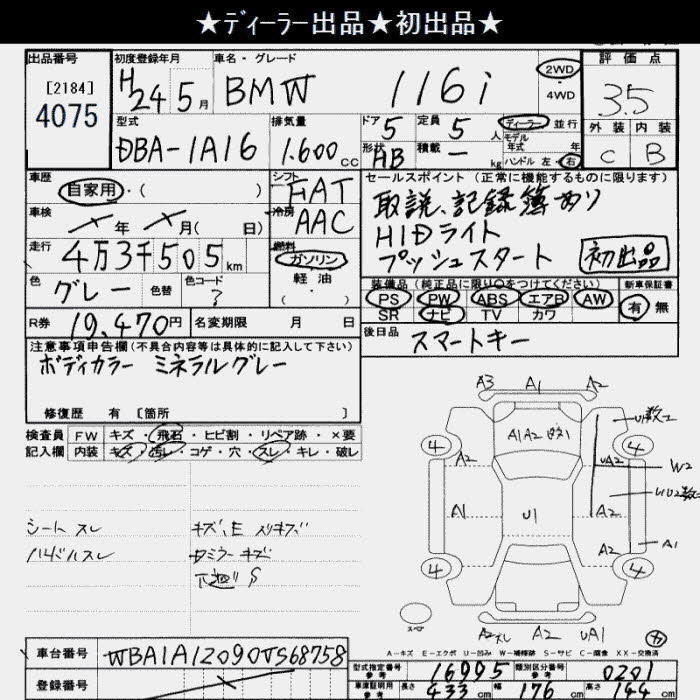 ★ディーラー出品★初出品★
出品番号 初度登録年月 車名・グレード 評価点
[2184]
4075
H24 5月 BMW 116i 2WD 4WD 3.5
型式 排気量 ドア 定員 ディーラー 並行 外装 内装
DBA-1A16 1.600cc 5 5人 モデル年式 年 C B
形状 積載 ハンドル 左・右
HB - kg
車歴 シフト セールスポイント (正常に機能するものに限ります)
自家用・( ) FAT 取説、記録簿あり
車検 冷房 HIDライト
年 月( 日) AAC プッシュスタート 初出品
走行 4万3千505km 燃料 ガソリン
軽油・( )
色 グレー 色替 色コード ?
装備品 (純正品に限り○をつけてください) 新車保証書
PS PW ABS エアB AW 有 無
SR ナビ TV カワ
R券 19,470円 名変期限 月 日 後日品 スマートキー
注意事項申告欄 (不具合内容等は具体的に記入して下さい)
ボディカラー ミネラルグレー
修復歴 有 [箇所 ]
検査員 FW キズ・飛石・ヒビ割・リペア跡・×要
記入欄 内装 キズ・汚レ・コゲ・穴・スレ・キレ・破レ
シート スレ
ハンドルスレ
キズ、E スリキズ
ミラーキズ
下廻り S
A3 A1 A2
A1A2
4 4
A2 UA2 W2
A1 U1 A2
A2 A1
4 4
スペア
A2 A2 UA1
A-キズ E-エクボ U-凹み W-補修跡 S-サビ C-腐蝕 XX-交換済
車台番号 WBA1A12090VS68758
登録番号
型式指定番号 参考 16995 類別区分番号 参考 0201
車庫証明用 参考 長さ 433cm 幅 176cm 高さ 144cm